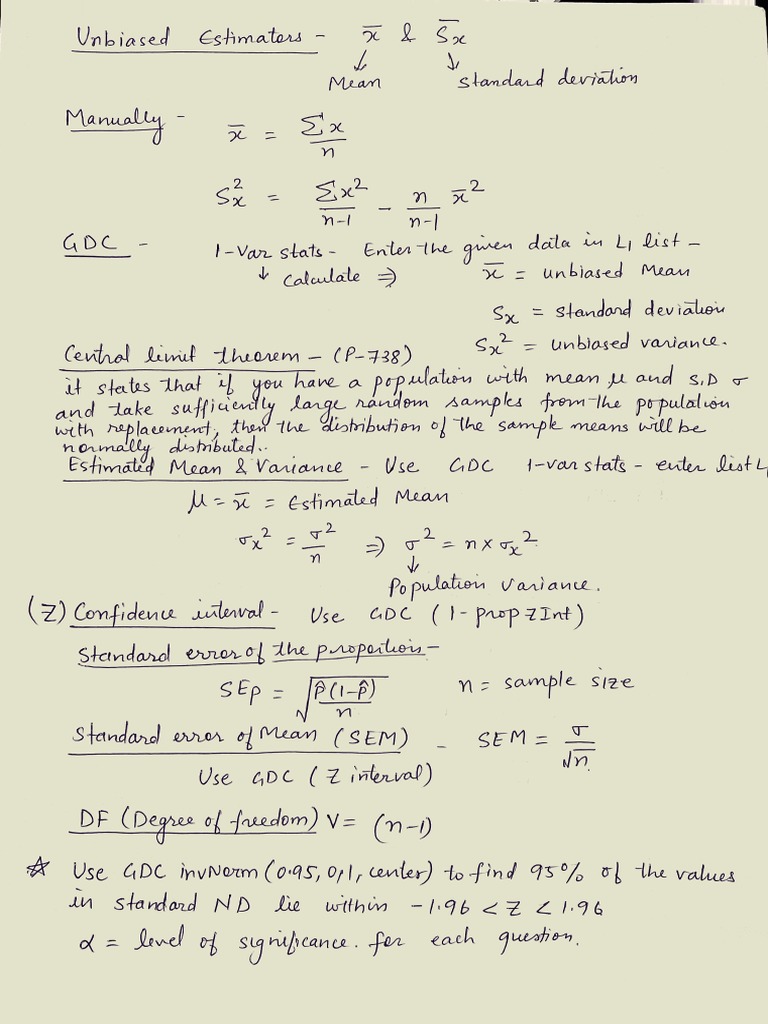 Unbiased Estimators - x̄ & S̄x
↓ Mean ↓ Standard deviation
Manually - x̄ = Σx/n
Sx² = Σx²/(n-1) - n/(n-1) x̄²
GDC - 1-Var stats - Enter the given data in L1 list -
↓ Calculate ⇒ x̄ = unbiased Mean
Sx = standard deviation
Sx² = unbiased variance.
Central limit theorem - (P-738)
it states that if you have a population with mean μ and S.D σ
and take sufficiently large random samples from the population
with replacement, then the distribution of the sample means will be
normally distributed..
Estimated Mean & Variance - Use GDC 1-var stats - enter list L1
μ = x̄ = Estimated Mean
σx² = σ²/n ⇒ σ² = n × σx²
↓
Population variance.
(Z) Confidence interval - Use GDC (1-prop ZInt)
Standard error of the proportion -
SEp = √(p̂(1-p̂)/n) n = sample size
Standard error of Mean (SEM) - SEM = σ/√n.
Use GDC (Z interval)
DF (Degree of freedom) V = (n-1)
☆ Use GDC invNorm (0.95, 0, 1, center) to find 95% of the values
in standard ND lie within -1.96 < Z < 1.96
α = level of significance. for each question.